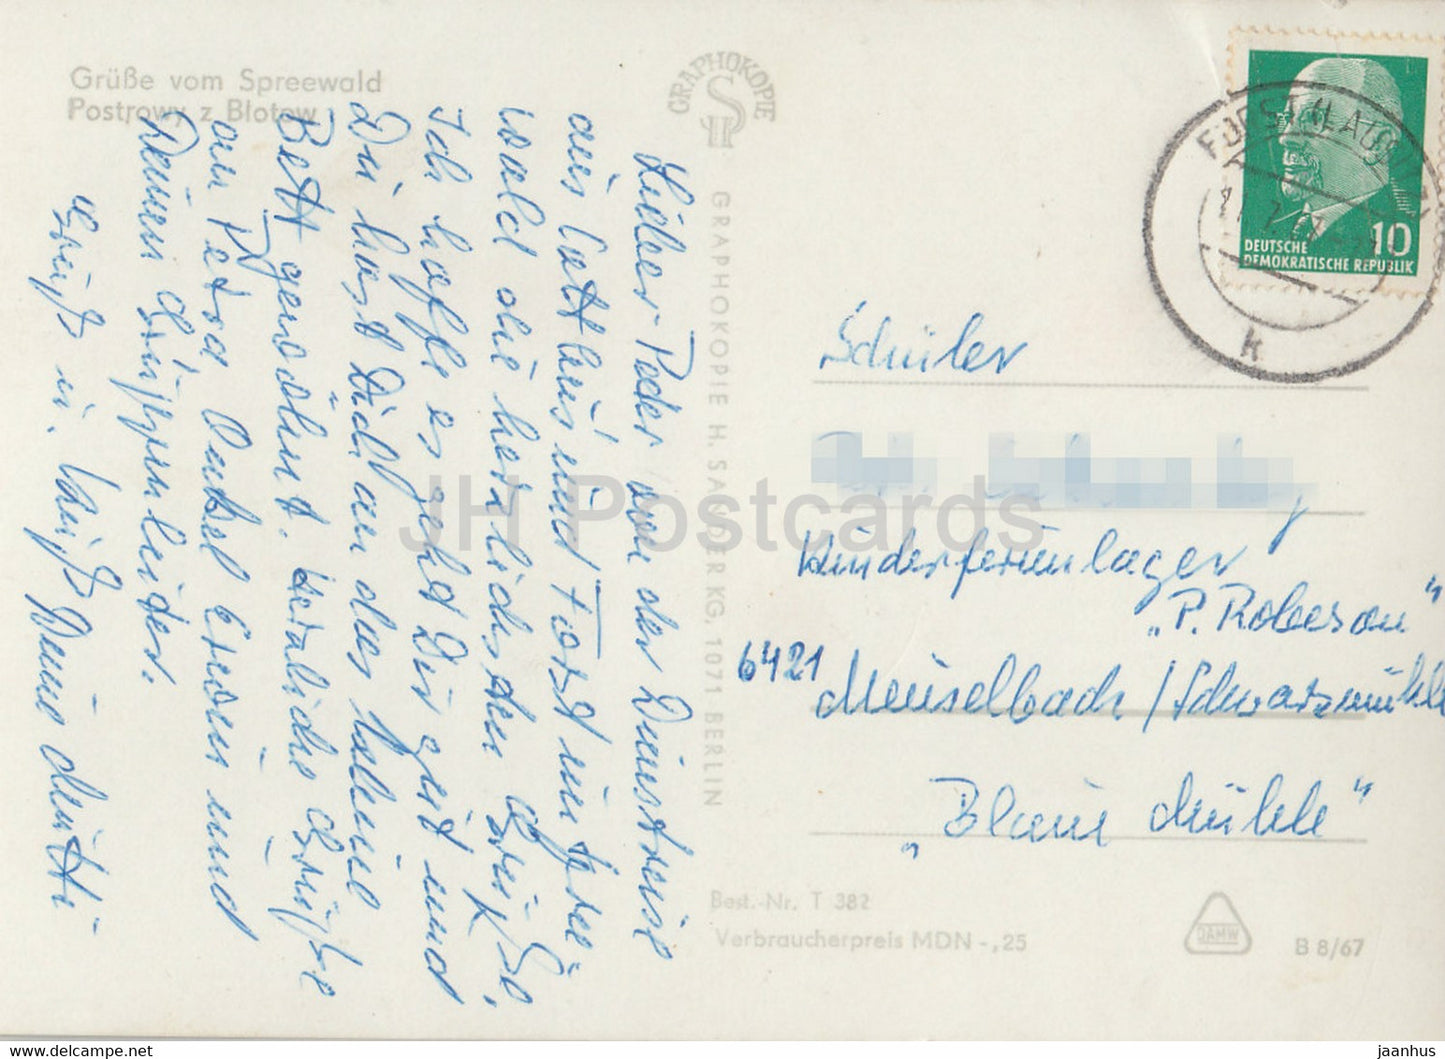 Grüße vom Spreewald
Postrowy z Błotow
GRAPHOKOPIE
GRAPHOKOPIE H. SANDER KG, 1071 BERLIN
Lieber Peder von der Dienstreise
aus Cottbus und Forst im Spree-
wald die herzlichsten Grüße,
Ich hoffe es geht Dir gut und
Du hast Dich an das kleine
Bett gewöhnt. Herzliche Grüße
an Petra, Onkel Erwin und
Deinen Gruppenleiter.
Gruß u. Kuß Deine Mutti
DEUTSCHE
DEMOKRATISCHE REPUBLIK
10
FORST (LAUSITZ)
k
Schüler
Kinderferienlager
„P. Robeson"
6421 Meuselbach / Schwarzmühle
„Blaue Mühle"
Best.-Nr. T 382
Verbraucherpreis MDN -,25
DAMW
B 8/67
JH Postcards
eBid.net
jaanhus